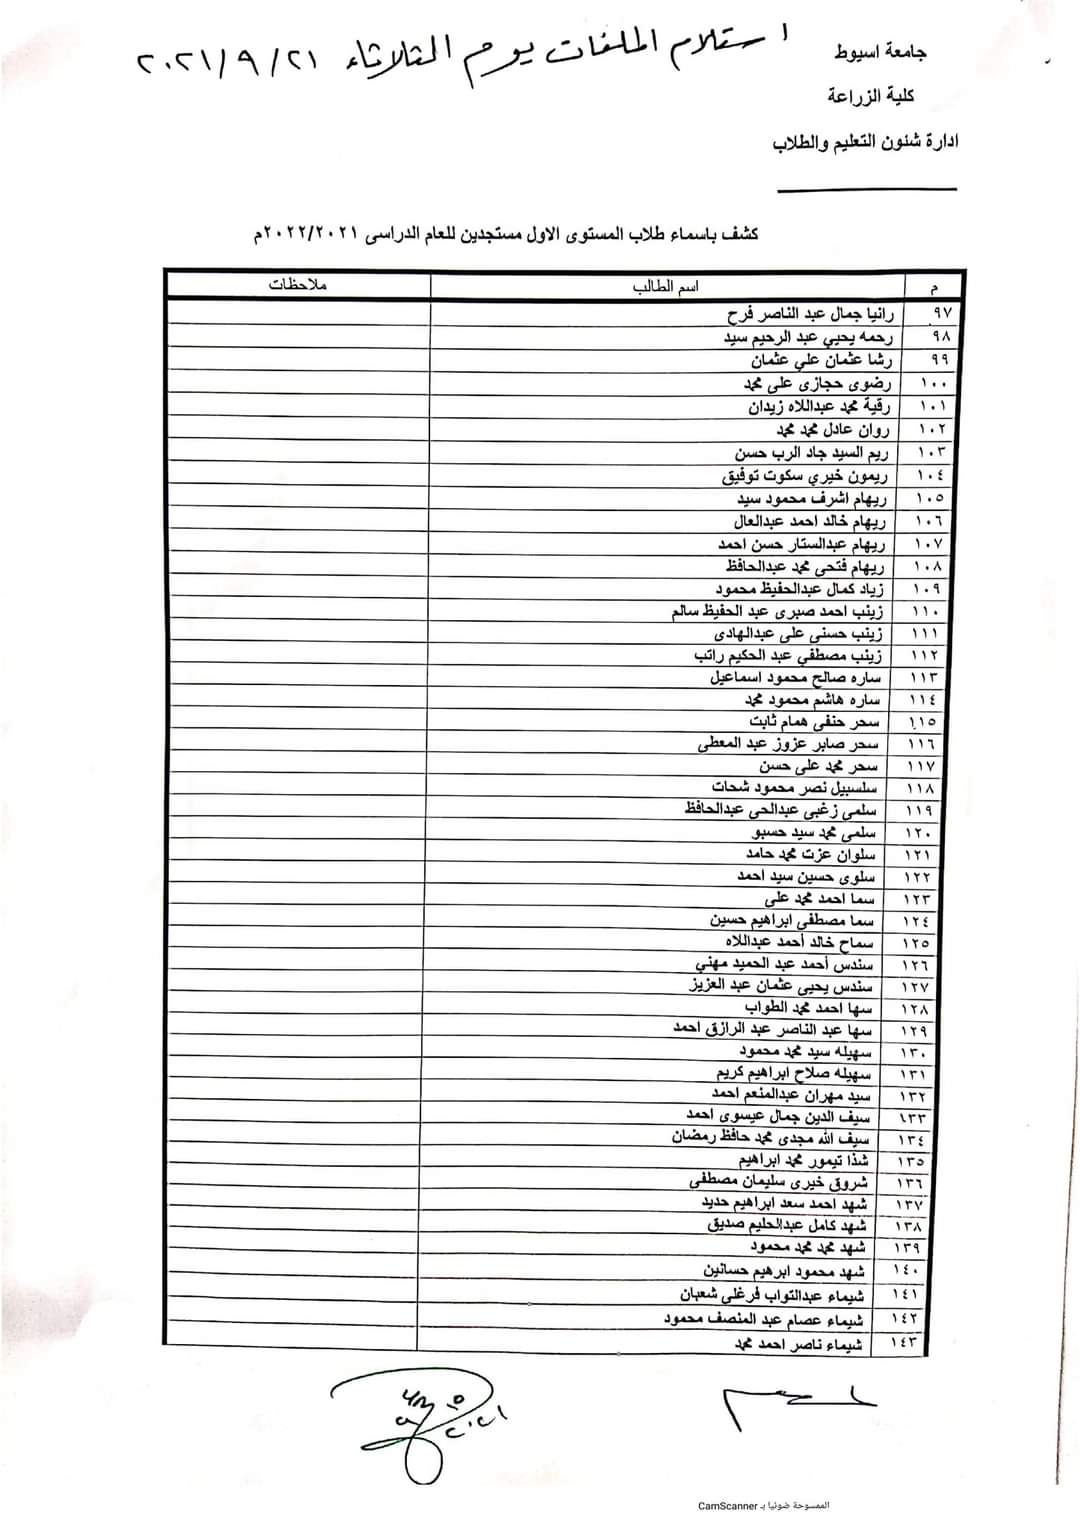 استلام الملفات يوم الثلاثاء ٢٠٢١/٩/٢١
جامعة اسيوط
كلية الزراعة
ادارة شئون التعليم والطلاب
كشف باسماء طلاب المستوى الاول مستجدين للعام الدراسى ٢٠٢٢/٢٠٢١م
م اسم الطالب ملاحظات
٩٧ رانيا جمال عبد الناصر فرح
٩٨ رحمه يحيي عبد الرحيم سيد
٩٩ رشا عثمان علي عثمان
١٠٠ رضوى حجازى على محمد
١٠١ رقية محمد عبداللاه زيدان
١٠٢ روان عادل محمد محمد
١٠٣ ريم السيد جاد الرب حسن
١٠٤ ريمون خيري سكوت توفيق
١٠٥ ريهام اشرف محمود سيد
١٠٦ ريهام خالد احمد عبدالعال
١٠٧ ريهام عبدالستار حسن احمد
١٠٨ ريهام فتحى محمد عبدالحافظ
١٠٩ زياد كمال عبدالحفيظ محمود
١١٠ زينب احمد صبرى عبد الحفيظ سالم
١١١ زينب حسنى على عبدالهادى
١١٢ زينب مصطفي عبد الحكيم راتب
١١٣ ساره صالح محمود اسماعيل
١١٤ ساره هاشم محمود محمد
١١٥ سحر حنفى همام ثابت
١١٦ سحر صابر عزوز عبد المعطى
١١٧ سحر محمد على حسن
١١٨ سلسبيل نصر محمود شحات
١١٩ سلمى زغبى عبدالحى عبدالحافظ
١٢٠ سلمى محمد سيد حسبو
١٢١ سلوان عزت محمد حامد
١٢٢ سلوى حسين سيد احمد
١٢٣ سما احمد محمد على
١٢٤ سما مصطفى ابراهيم حسين
١٢٥ سماح خالد أحمد عبداللاه
١٢٦ سندس أحمد عبد الحميد مهني
١٢٧ سندس يحيى عثمان عبد العزيز
١٢٨ سها احمد محمد الطواب
١٢٩ سها عبد الناصر عبد الرازق احمد
١٣٠ سهيله سيد محمد محمود
١٣١ سهيله صلاح ابراهيم كريم
١٣٢ سيد مهران عبدالمنعم احمد
١٣٣ سيف الدين جمال عيسوى احمد
١٣٤ سيف الله مجدى محمد حافظ رمضان
١٣٥ شذا تيمور محمد ابراهيم
١٣٦ شروق خيرى سليمان مصطفى
١٣٧ شهد احمد سعد ابراهيم حديد
١٣٨ شهد كامل عبدالحليم صديق
١٣٩ شهد محمد محمد محمود
١٤٠ شهد محمود ابرهيم حسانين
١٤١ شيماء عبدالتواب فرغلى شعبان
١٤٢ شيماء عصام عبد المنصف محمود
١٤٣ شيماء ناصر احمد محمد
الممسوحة ضوئيا بـ CamScanner